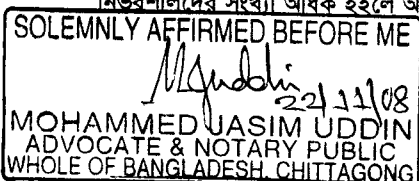 নির্ভরশীলদের সংখ্যা অধিক হইলে অ
SOLEMNLY AFFIRMED BEFORE ME
22/11/08
MOHAMMED JASIM UDDIN
ADVOCATE & NOTARY PUBLIC
WHOLE OF BANGLADESH, CHITTAGONG